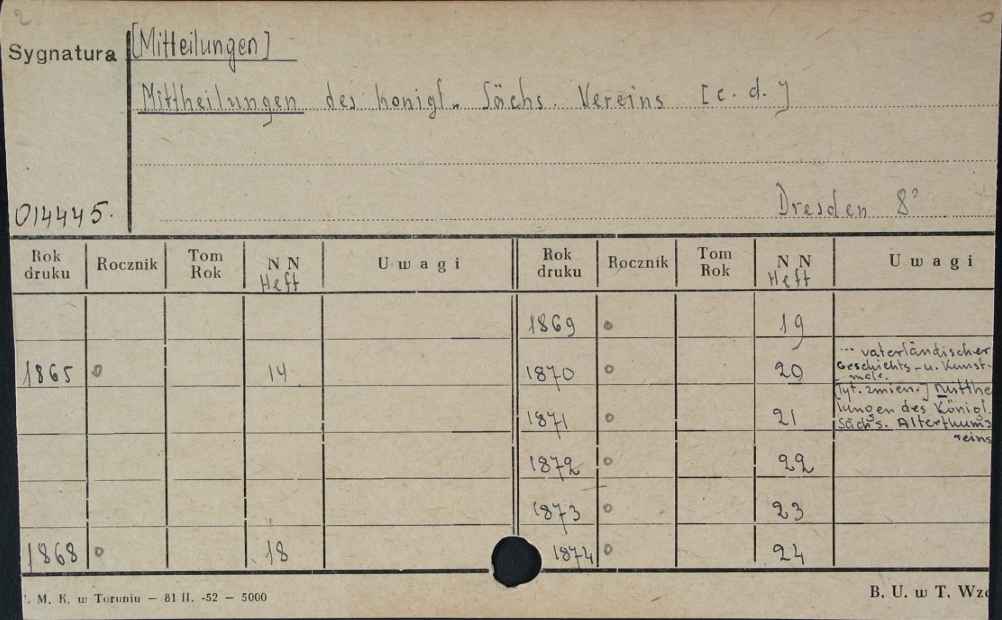 2
Sygnatura
[Mitteilungen]
Mittheilungen des Königl. Sächs. Vereins [c. d.]
014445.
Dresden 8°
Rok druku Rocznik Tom Rok NN Heft Uwagi Rok druku Rocznik Tom Rok NN Heft Uwagi
1869 o 19
1865 o 14 1870 o 20 ... vaterländischer
Geschichts- u. Kunst-
male.
[Tyt. zmien.] Mitthe
1871 o 21 lungen des Königl.
Sächs. Alterthums
reins
1872 o 22
1873 o 23
1868 o 18 1874 o 24
. M. K. w Toruniu – 81 II. -52 – 5000
B. U. w T. Wzó